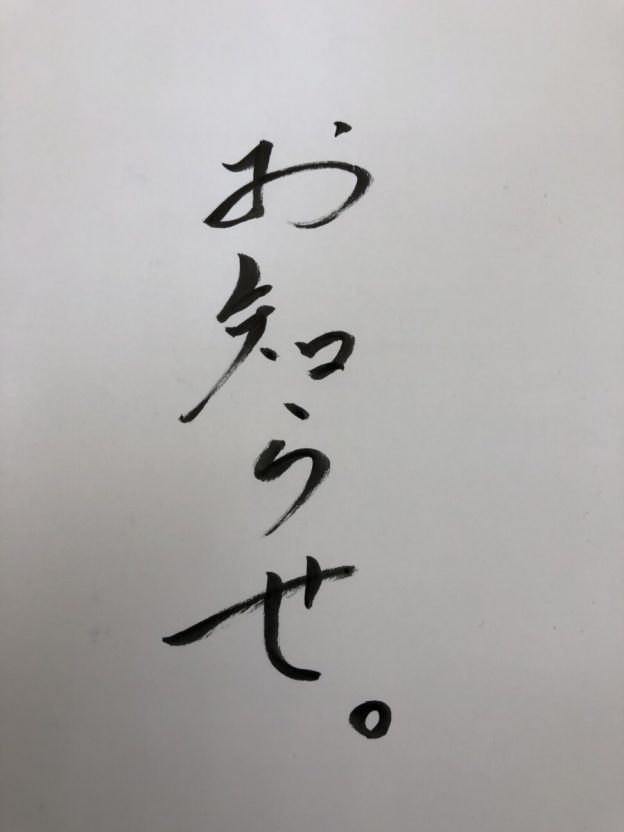 お知らせ。